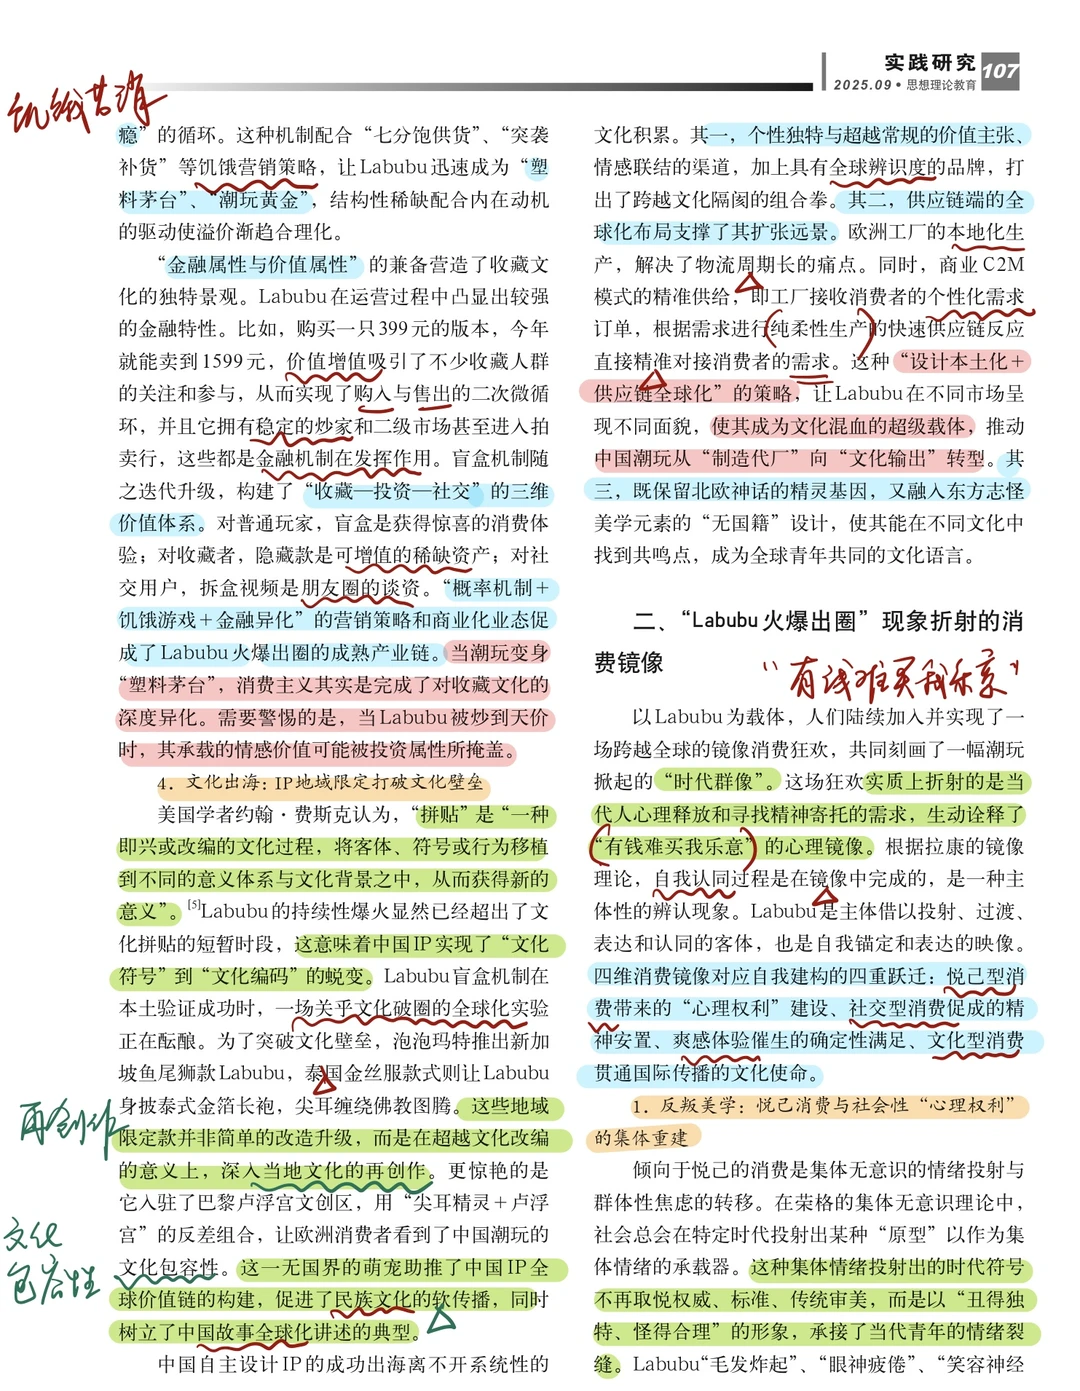 实践研究 107
2025.09 • 思想理论教育
饥饿营销
瘾”的循环。这种机制配合“七分饱供货”、“突袭
补货”等饥饿营销策略，让Labubu迅速成为“塑
料茅台”、“潮玩黄金”，结构性稀缺配合内在动机
的驱动使溢价渐趋合理化。
“金融属性与价值属性”的兼备营造了收藏文
化的独特景观。Labubu在运营过程中凸显出较强
的金融特性。比如，购买一只399元的版本，今年
就能卖到1599元，价值增值吸引了不少收藏人群
的关注和参与，从而实现了购入与售出的二次微循
环，并且它拥有稳定的炒家和二级市场甚至进入拍
卖行，这些都是金融机制在发挥作用。盲盒机制随
之迭代升级，构建了“收藏—投资—社交”的三维
价值体系。对普通玩家，盲盒是获得惊喜的消费体
验；对收藏者，隐藏款是可增值的稀缺资产；对社
交用户，拆盒视频是朋友圈的谈资。“概率机制+
饥饿游戏+金融异化”的营销策略和商业化业态促
成了Labubu火爆出圈的成熟产业链。当潮玩变身
“塑料茅台”，消费主义其实是完成了对收藏文化的
深度异化。需要警惕的是，当Labubu被炒到天价
时，其承载的情感价值可能被投资属性所掩盖。
4. 文化出海：IP地域限定打破文化壁垒
美国学者约翰·费斯克认为，“拼贴”是“一种
即兴或改编的文化过程，将客体、符号或行为移植
到不同的意义体系与文化背景之中，从而获得新的
意义”。[5]Labubu的持续性爆火显然已经超出了文
化拼贴的短暂时段，这意味着中国IP实现了“文化
符号”到“文化编码”的蜕变。Labubu盲盒机制在
本土验证成功时，一场关乎文化破圈的全球化实验
正在酝酿。为了突破文化壁垒，泡泡玛特推出新加
坡鱼尾狮款Labubu，泰国金丝服款式则让Labubu
身披泰式金箔长袍，尖耳缠绕佛教图腾。这些地域
限定款并非简单的改造升级，而是在超越文化改编
的意义上，深入当地文化的再创作。更惊艳的是
它入驻了巴黎卢浮宫文创区，用“尖耳精灵+卢浮
宫”的反差组合，让欧洲消费者看到了中国潮玩的
文化包容性。这一无国界的萌宠助推了中国IP全
球价值链的构建，促进了民族文化的软传播，同时
树立了中国故事全球化讲述的典型。
中国自主设计IP的成功出海离不开系统性的
再创作
文化
包容性
文化积累。其一，个性独特与超越常规的价值主张、
情感联结的渠道，加上具有全球辨识度的品牌，打
出了跨越文化隔阂的组合拳。其二，供应链端的全
球化布局支撑了其扩张远景。欧洲工厂的本地化生
产，解决了物流周期长的痛点。同时，商业C2M
模式的精准供给，即工厂接收消费者的个性化需求
订单，根据需求进行纯柔性生产的快速供应链反应
直接精准对接消费者的需求。这种“设计本土化+
供应链全球化”的策略，让Labubu在不同市场呈
现不同面貌，使其成为文化混血的超级载体，推动
中国潮玩从“制造代厂”向“文化输出”转型。其
三，既保留北欧神话的精灵基因，又融入东方志怪
美学元素的“无国籍”设计，使其能在不同文化中
找到共鸣点，成为全球青年共同的文化语言。
二、“Labubu火爆出圈”现象折射的消
费镜像
“有钱难买我乐意”
以Labubu为载体，人们陆续加入并实现了一
场跨越全球的镜像消费狂欢，共同刻画了一幅潮玩
掀起的“时代群像”。这场狂欢实质上折射的是当
代人心理释放和寻找精神寄托的需求，生动诠释了
“有钱难买我乐意”的心理镜像。根据拉康的镜像
理论，自我认同过程是在镜像中完成的，是一种主
体性的辨认现象。Labubu是主体借以投射、过渡、
表达和认同的客体，也是自我锚定和表达的映像。
四维消费镜像对应自我建构的四重跃迁：悦己型消
费带来的“心理权利”建设、社交型消费促成的精
神安置、爽感体验催生的确定性满足、文化型消费
贯通国际传播的文化使命。
1. 反叛美学：悦己消费与社会性“心理权利”
的集体重建
倾向于悦己的消费是集体无意识的情绪投射与
群体性焦虑的转移。在荣格的集体无意识理论中，
社会总会在特定时代投射出某种“原型”以作为集
体情绪的承载器。这种集体情绪投射出的时代符号
不再取悦权威、标准、传统审美，而是以“丑得独
特、怪得合理”的形象，承接了当代青年的情绪裂
缝。Labubu“毛发炸起”、“眼神疲倦”、“笑容神经